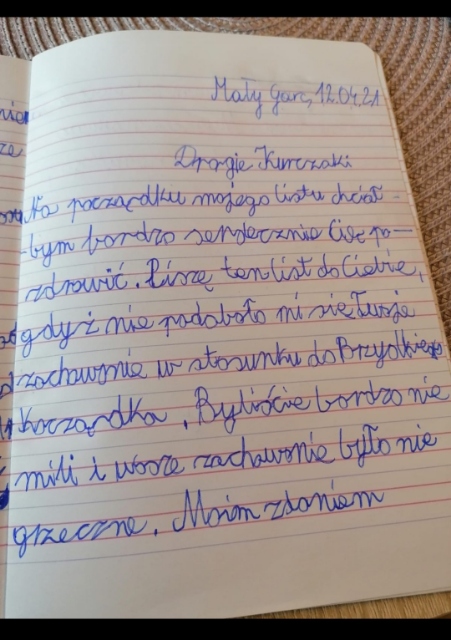 Mały Garc, 12.04.21
Drogie Kurczaki
Na począrdku mojego listu chciał-
-bym bardzo serdecznie Cię po-
zdrowić. Piszę ten list do Ciebie,
gdyż nie podobało mi się Twoje
zachowanie w stosunku do Brzydkiego
Kaczządka. Byliście bardzo nie
mili i wasze zachowanie było nie
grzeczne. Moim zdaniem